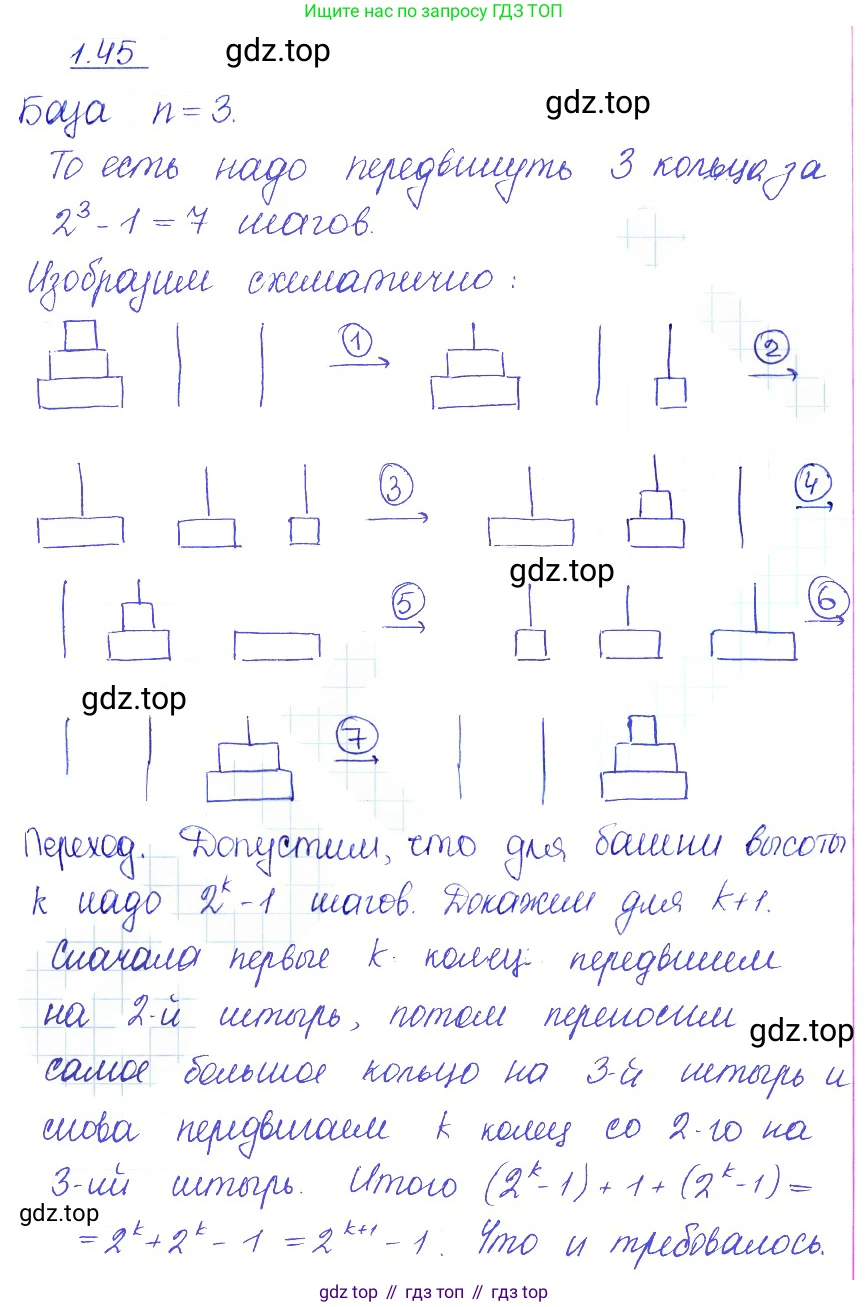 Ищите нас по запросу ГДЗ ТОП
1.45
gdz.top
База n = 3.
gdz.top
То есть надо передвинуть 3 кольца за
2³ - 1 = 7 шагов.
Изобразим схематично:
1
2
3
4
gdz.top
5
6
gdz.top
7
Переход. Допустим, что для башни высоты
k надо 2^k - 1 шагов. Докажем для k+1.
Сначала первые k колец передвинем
на 2-й штырь, потом переносим
gdz.top
самое большое кольцо на 3-й штырь и
снова передвигаем k колец со 2-го на
3-ий штырь. Итого (2^k - 1) + 1 + (2^k - 1) =
gdz.top
= 2^k + 2^k - 1 = 2^{k+1} - 1. Что и требовалось.
gdz.top // гдз топ // gdz.top